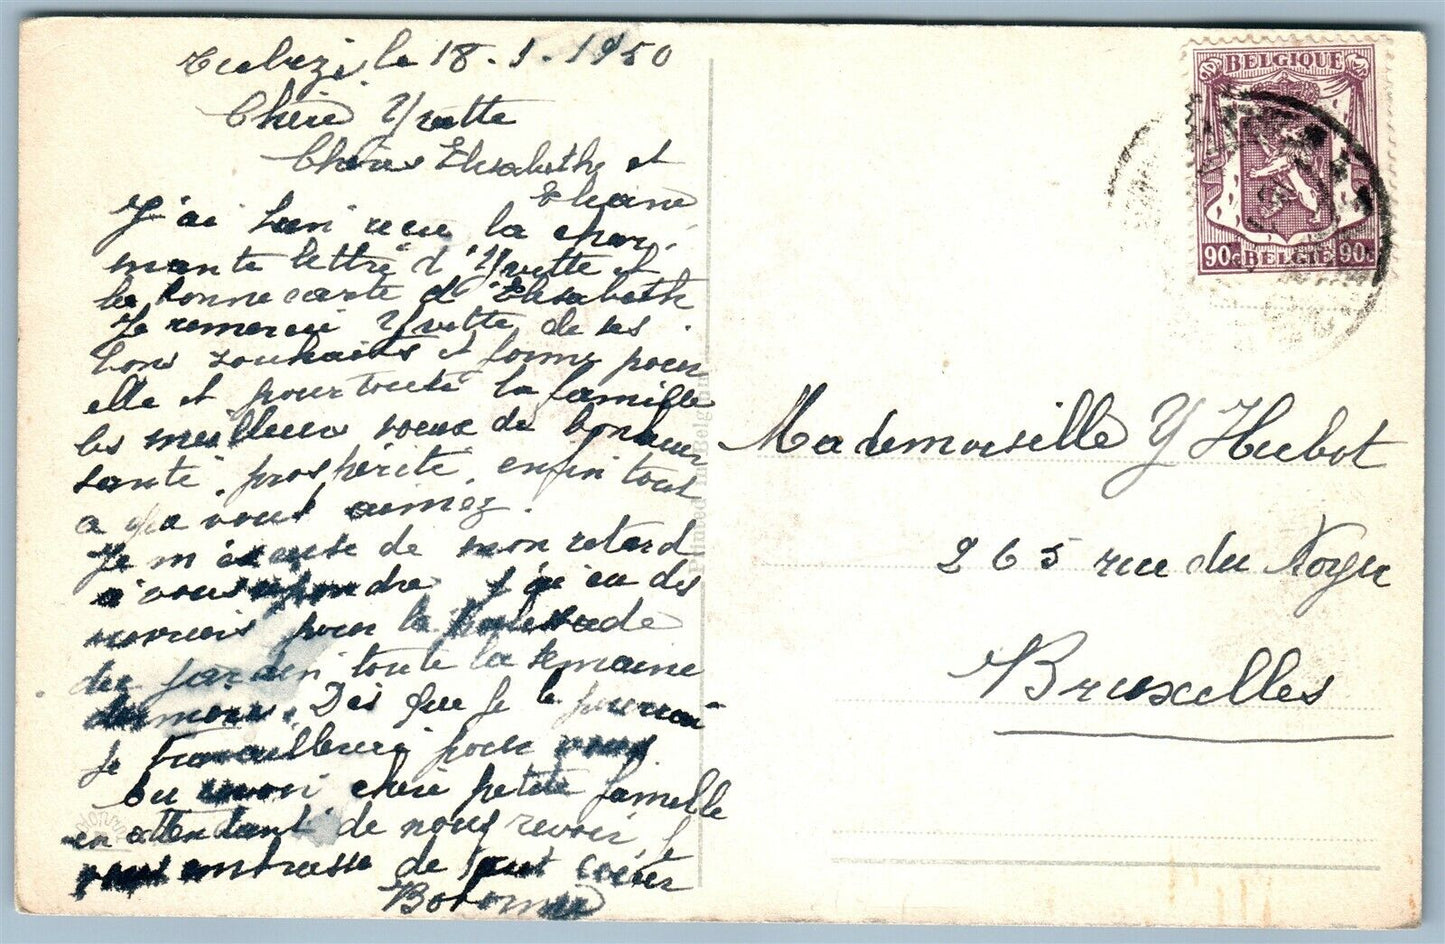 Tubize le 18.1.1950
Chère Yvette
Chères Elisabeth et
Eliane
J'ai bien reçu la char
mante lettre d'Yvette et
la bonne carte d'Elisabeth
Je remercie Yvette de ses
bons souhaits et forme pour
elle et pour toute la famille
les meilleurs voeux de bonheur
santé, prospérité, enfin tout
ce que vous aimez.
Je m'excuse de mon retard
à vous répondre j'ai eu des
pour la
du jardin toute la semaine
Dès que je le pourrai
je travaillerai pour vous
Au revoir chère petite famille
en attendant de nous revoir, je
vous embrasse de tout coeur
BELGIQUE
90c BELGIE 90c
Mademoiselle Y Hubot
265 rue du Noyer
Bruxelles
Printed in Belgium